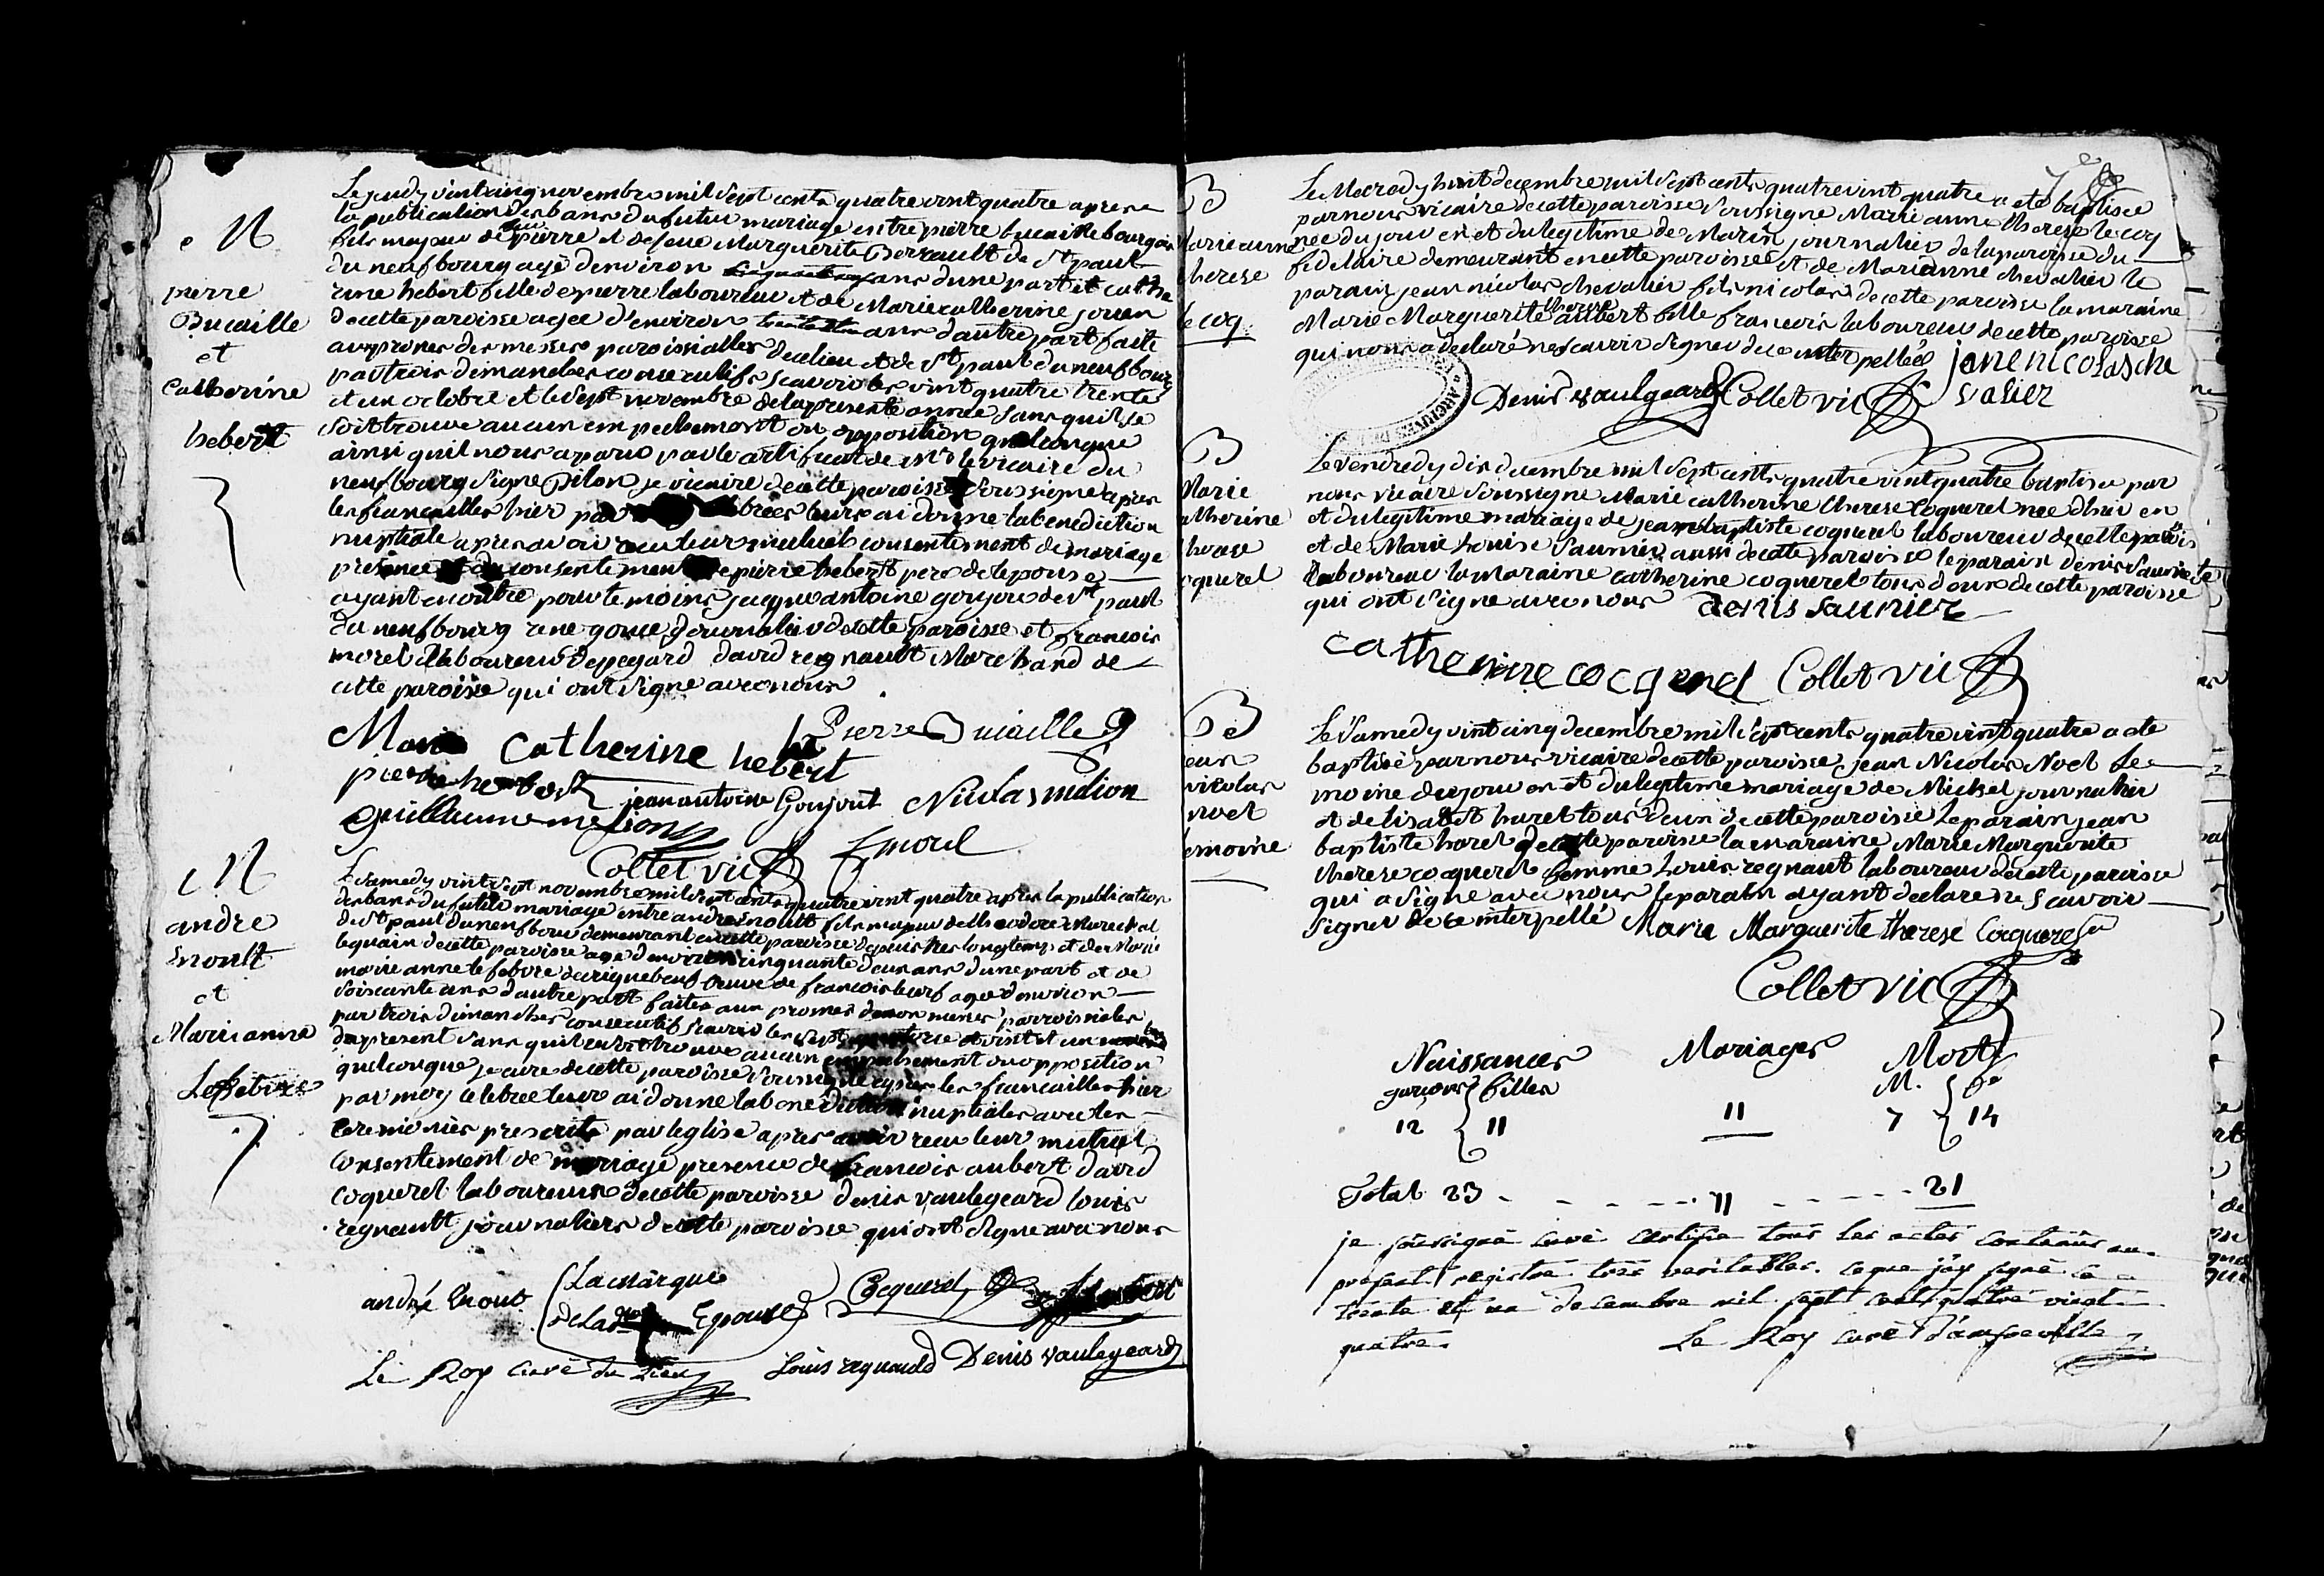 M
pierre
Bucaille
et
Catherine
hebert
Le jeudy vintcinq novembre mil sept cents quatre vint quatre apres
la publication des bans du futur mariage entre pierre bucaille bourgois
fils majeur de feu pierre et de feue Marguerite Perrault de St paul
du neufbourg agé denviron ans dune part et cathe
rine hebert fille de pierre laboureur et de Marie catherine jouen
de cette paroisse agee d'environ ans dautre part faite
aux prones des messes paroissialles de ce lieu et de St paul du neufbourg
par trois dimanches consecutifs scavoir les vint quatre trente
et un octobre et le sept novembre de la presente année sans quil se
soit trouve aucun empechement ou opposition quelconque
ainsi quil nous a paru par le certificat de Mr le vicaire du
neufbourg signe Pilon je vicaire de cette paroisse soussigne apres
les fiancailles hier par brées leurs ai donne la benediction
nuptiale apres avoir recu leur mutuel consentement de mariage
présence et du consentement de pierre hebert pere de lepouse
ayant en outre pour temoins jacque antoine goujou de St paul
du neufbourg rene gouce journalier de cette paroisse et francois
morel laboureur depegard david regnault Marchand de
cette paroisse qui ont signe avec nous
Marie Catherine hebert Pierre Bucaille
pierre hebert jean antoine Goujout Nicolas melion
guillaume melion fmorel
Collet vic
M
andre
Enoult
et
Marie anne
Lefebvre
Le samedy vint sept novembre mil sept cents quatre vint quatre après la publication
des bans du futur mariage entre andre Enoult fils majeur de theodore Marechal
de St paul du neufbour demeurant en cette paroisse depuis tres longtems et de Marie
lequain de cette paroisse age denviron cinquante deux ans dune part et de
marie anne lefebvre de criquebeuf veuve de francois leuf agee denviron
soixante ans dautre part faites aux prones de nos messes parroissiales
par trois dimanches consecutifs scavoir les sept quatorze et vint et un
du present sans quil se soit trouve aucun empechement ou opposition
quelconque je cure de cette paroisse soussigne apres les fiancailles hier
par moy celebree leur ai donne la benediction nuptiales avec les
ceremonies prescrite par leglise apres avoir recu leur mutuel
consentement de mariage presence de francois aubert david
coquerel laboureurs de cette paroisse denis vaulegeard louis
regnault journaliers de cette paroisse qui ont signe avec nous
andré Enout La marque Coquerel f aubert
de la Epouse
Le Roy curé du Lieu Loüis regnauld Denis vaulegeard
B
Marie anne
therese
le coq
Le Mecredy huit decembre mil sept cents quatrevint quatre a ete baptisee
par nous vicaire de cette paroisse soussigne Marie anne therese le coq
nee du jour en et du legitime de Marin journalier de la paroisse du
fidelaire demeurant en cette paroisse et de Marianne chevalier le
parain jean nicolas chevalier fils nicolas de cette paroisse la maraine
Marie Marguerite therese aubert fille francois laboureur de cette paroisse
qui nous a declaré ne scavoir signer de ce interpellée jane nicolas che
valier
Denis vaulgeard Collet vic
B
Marie
atherine
therese
oquerel
Le vendredy dix decembre mil sept cents quatre vint quatre baptisee par
nous vicaire soussigne Marie catherine therese Coquerel nee dhier en
et du legitime mariage de jean baptiste coquerel laboureur de cette parois
et de Marie Louise saunier aussi de cette paroisse le parain denis saunier
laboureur la maraine catherine coquerel tous deux de cette paroisse
qui ont signe avec nous denis saunier
catherinne cocquerel Collet vic
B
ean
nicolas
noel
emoine
Le samedy vintcinq decembre mil sept cents quatre vint quatre a ete
baptisé par nous vicaire de cette paroisse jean Nicolas Noel Le
moine du jour en et du legitime mariage de Michel journalier
et de lisabet harel tous deux de cette paroisse Le parain jean
baptiste harel de cette paroisse la maraine Marie Marguerite
therese coquerel femme Louis regnaut laboureur de cette paroisse
qui a signe avec nous le parain ayant declare ne scavoir
signer de ce interpellé Marie Marguerite therese Coquerel
Collet vic
Naissances Mariages Morts
garcons filles M. fe
12 11 11 7 14
Total 23 - - - - - 11 - - - - - 21
je soussigné curé certifie tous les actes contenus au
present registre tres veritables. ce que j'ay signé ce
trente et un decembre mil sept cent quatre vingt
quatre. Le Roy curé d'amfreville